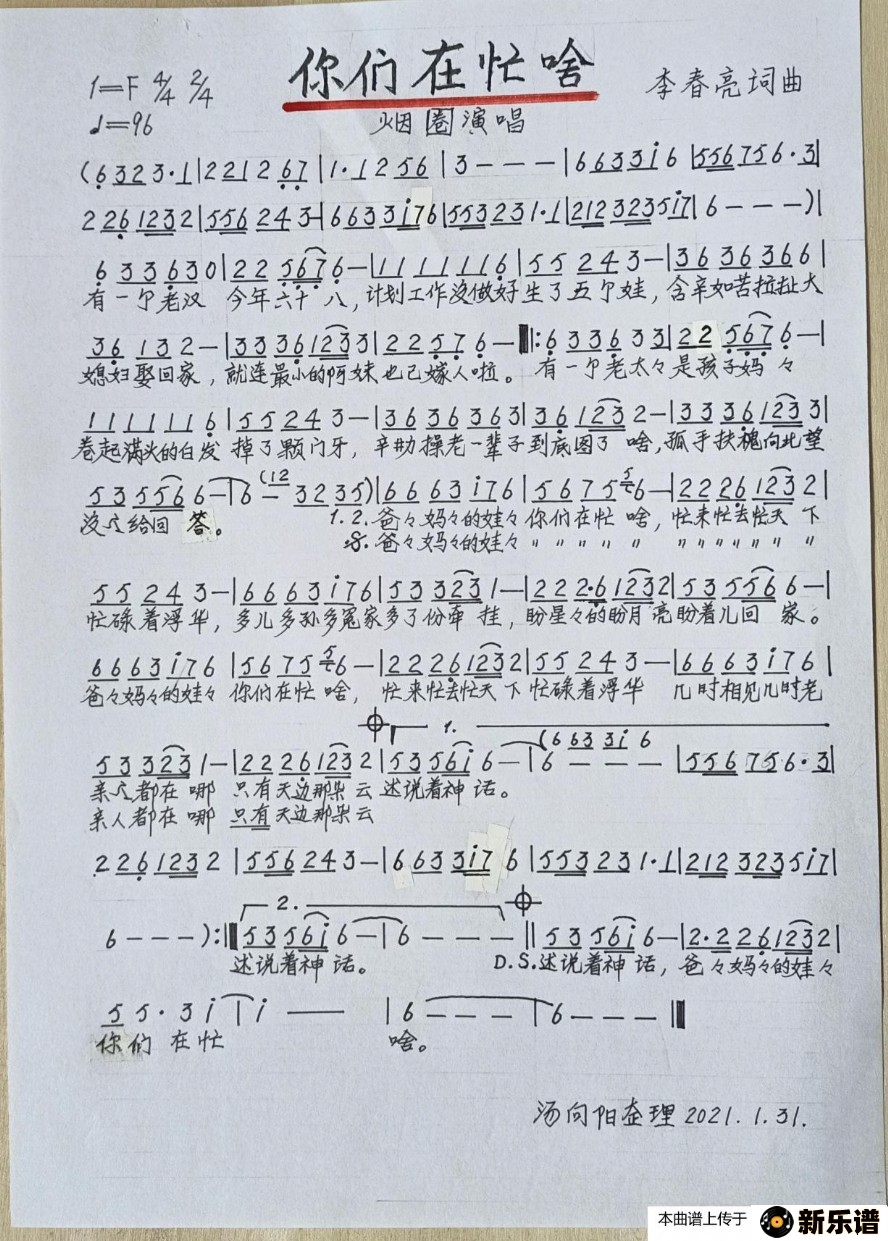 你们在忙啥
1=F 4/4 2/4
李春亮词曲
♩=96
烟圈演唱
(6 3 2 3·1|2 2 1 2 6 7|1·1 2 5 6|3 - - -|6 6 3 3 i 6|5 5 6 7 5 6·3|
2 2 6 1 2 3 2|5 5 6 2 4 3-|6 6 3 3 i 7 6|5 5 3 2 3 1·1|2 1 2 3 2 3 5 i 7|6 - - -)|
6 3 3 6 3 0|2 2 5 6 7 6-|1 1 1 1 1 1 6|5 5 2 4 3-|3 6 3 6 3 6 6|
有一个老汉 今年六十八,计划工作没做好生了五个娃,含辛如苦拉扯大
3 6 1 3 2-|3 3 3 6 1 2 3 3|2 2 5 7 6-‖:6 3 3 6 3 3|2 2 5 6 7 6-|
媳妇娶回家,就连最小的阿妹也已嫁人啦。有一个老太々是孩子妈々
1 1 1 1 1 1 6|5 5 2 4 3-|3 6 3 6 3 6 3|3 6 1 2 3 2-|3 3 3 6 1 2 3 3|
卷起满头的白发 掉了颗门牙,辛劝操老一辈子到底图了啥,孤手扶槐向北望
5 3 5 5 6 6-|6(1 2 - 3 2 3 5)|6 6 6 3 i 7 6|5 6 7 5 5 6-|2 2 2 6 1 2 3 2|
没给回答。 1. 2. 爸々妈々的娃々 你们在忙啥,忙来忙去忙天下
𝄋. 爸々妈々的娃々 〃 〃 〃 〃 〃 〃 〃 〃 〃 〃 〃 〃
5 5 2 4 3-|6 6 6 3 i 7 6|5 3 3 2 3 1-|2 2 2·6 1 2 3 2|5 3 5 5 6 6-|
忙碌着浮华,多儿多孙多冤家多了份牵挂,盼星々的盼月亮盼着儿回家。
6 6 6 3 i 7 6|5 6 7 5 5 6-|2 2 2 6 1 2 3 2|5 5 2 4 3-|6 6 6 3 i 7 6|
爸々妈々的娃々 你们在忙啥,忙来忙去忙天下 忙碌着浮华 几时相见几时老
1.
5 3 3 2 3 1-|2 2 2 6 1 2 3 2|5 3 5 6 i 6-|(6 6 3 3 i 6 6 - - -|5 5 6 7 5 6·3|
亲都在哪 只有天边那朵云 述说着神话。
亲人都在哪 只有天边那朵云
2 2 6 1 2 3 2|5 5 6 2 4 3-|6 6 3 3 i 7 6|5 5 3 2 3 1·1|2 1 2 3 2 3 5 i 7|
2.
6 - - -):‖5 3 5 6 i 6-|6 - - -‖5 3 5 6 i 6-|2·2 2 6 1 2 3 2|
述说着神话。 D.S.述说着神话,爸々妈々的娃々
5 5·3 i|i —— |6 - - -|6 - - -‖
你们在忙 啥。
汤向阳整理 2021.1.31.
本曲谱上传于 新乐谱